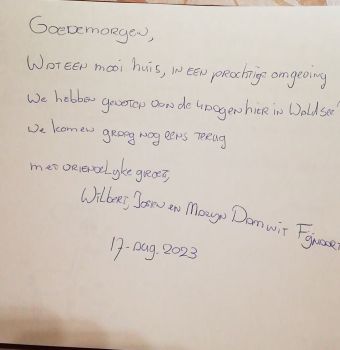 Goedemorgen,
Wat een mooi huis, in een prachtige omgeving
We hebben genoten van de 4 dagen hier in Waldsee!
We komen graag nog eens terug
met vriendelijke groet,
Wilbert, Josien en Marijn Damwit Fijnaart
17-aug.2023